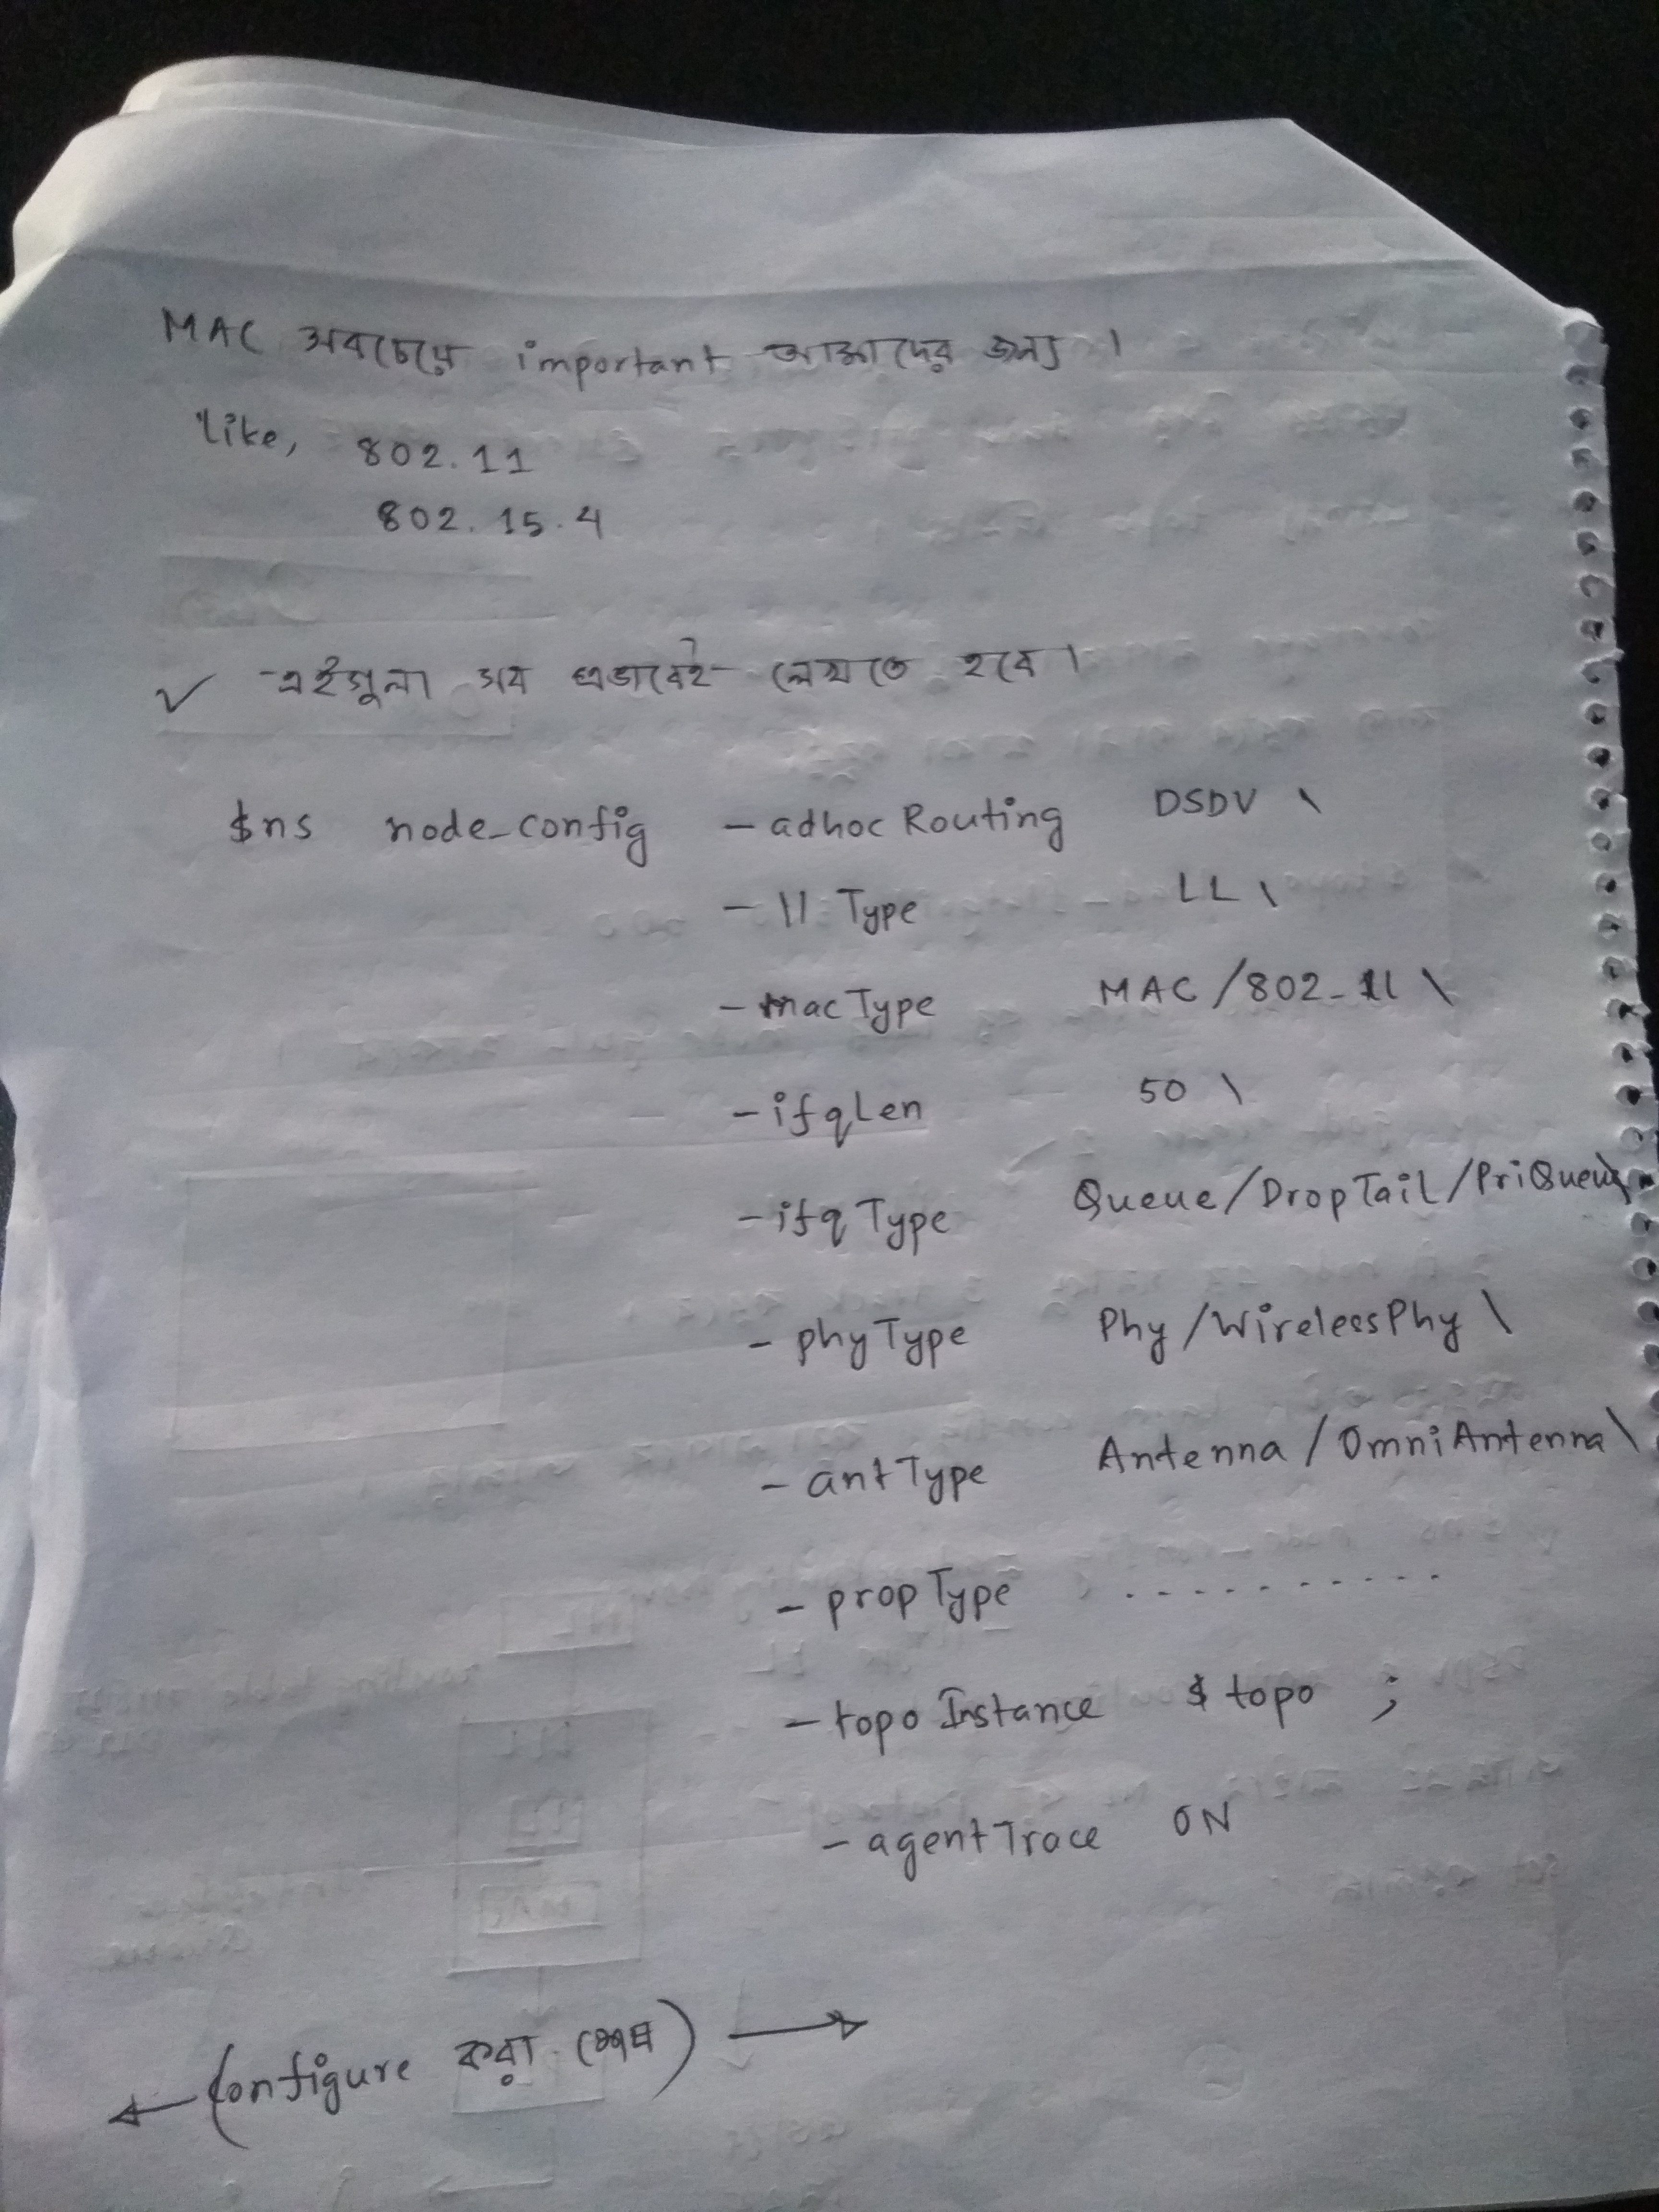 MAC সবচেয়ে important আমাদের জন্য ।
like, 802.11
802.15.4
✓ এইগুলা সব এভাবেই লেখতে হবে ।
$ns node_config -adhocRouting DSDV \
-llType LL \
-macType MAC/802_11 \
-ifqLen 50 \
-ifqType Queue/DropTail/PriQueue\
-phyType Phy/WirelessPhy \
-antType Antenna/OmniAntenna \
-propType ..........
-topoInstance $topo ;
-agentTrace ON
← (Configure করা শেষ) →